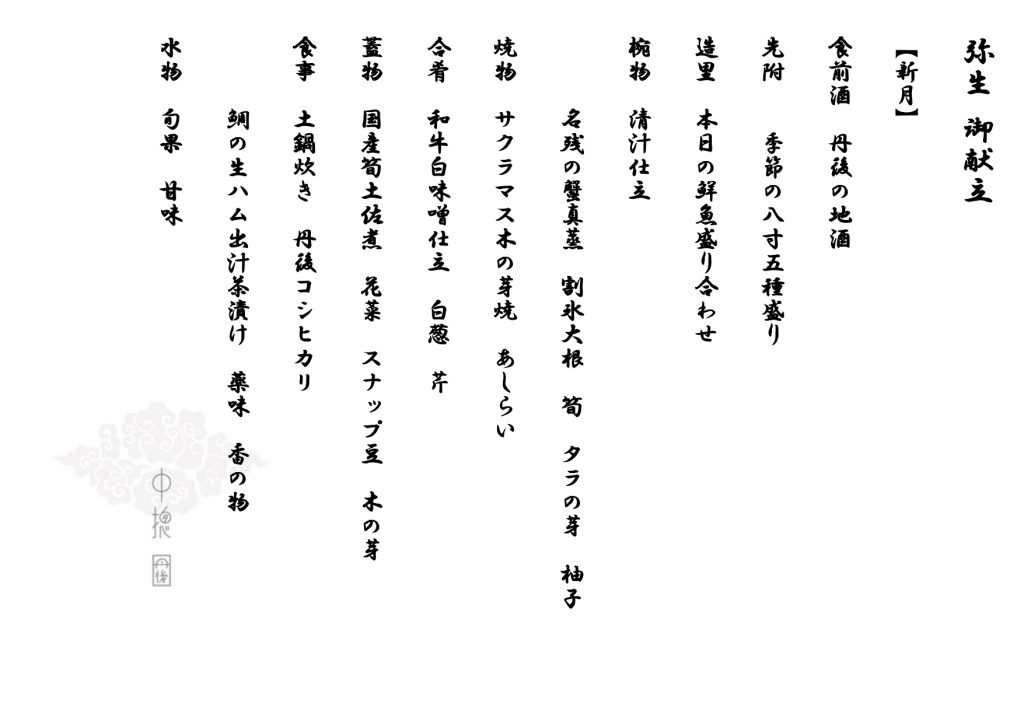 弥生 御献立
【新月】
食前酒 丹後の地酒
先附 季節の八寸五種盛り
造里 本日の鮮魚盛り合わせ
椀物 清汁仕立
名残の蟹真蒸 割氷大根 筍 タラの芽 柚子
焼物 サクラマス木の芽焼 あしらい
合肴 和牛白味噌仕立 白葱 芹
蓋物 国産筍土佐煮 花菜 スナップ豆 木の芽
食事 土鍋炊き 丹後コシヒカリ
鯛の生ハム出汁茶漬け 薬味 香の物
水物 旬果 甘味
丹後